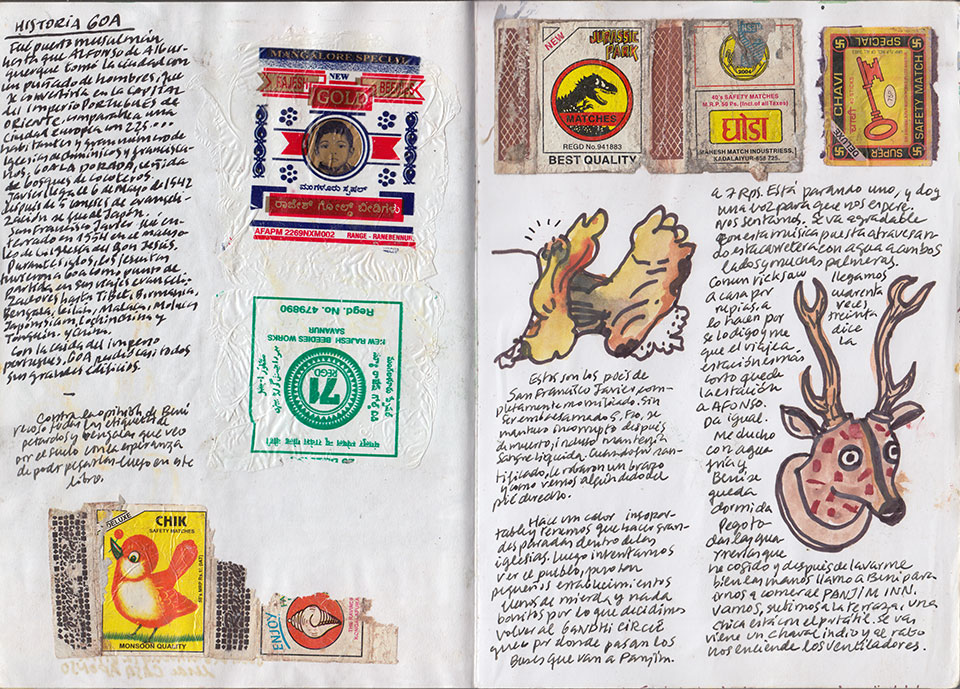 HISTORIA GOA
Fue puerto musulmán
hasta que ALFONSO de Albur-
querque tomó la ciudad con
un puñado de hombres, fue
Se convirtió en la capital
del imperio PORTUGUÉS de
ORIENTE, comparable a una
ciudad europea con 225...
habitantes y gran número de
iglesias de dominicos y francisca-
nos. GOA LA DORADA, ceñida
de bosques de cocoteros.
Javier llega el 6 de Mayo de 1542
después de 5 meses de evangeli-
zación se fue al Japón.
San Francisco Javier fue en-
terrado en 1554 en el mausoleo
de la iglesia del Bon Jesús.
Durante siglos, los jesuitas
tuvieron a GOA como punto de
partida en sus viajes evangeli-
zadores hasta Tíbet, Birmania,
Bengala, Ceilán, Malaca, Molucas
Japón, Siam, Cochinchina y
Tonquín y China.
Con la caída del imperio
portugués, GOA perdió casi todos
sus grandes edificios.
Contra la opinión de Beni
recojo todas las etiquetas de
petardos y bengalas que veo
por el suelo con la esperanza
de poder pegarlas luego en este
libro.
MANGALORE SPECIAL
NEW
RAJESH BEEDIES
GOLD
ಮಂಗಳೂರು ಸ್ಪೆಷಲ್
ರಾಜೇಶ್ ಗೋಲ್ಡ್ ಬೀಡಿಗಳು
AFAPM 2269NXM002 RANGE - RANEBENNUR
Regd. No. 479890
NEW RAJESH BEEDIES WORKS
SAVANUR
71
REGD
DELUXE
CHIK
SAFETY MATCHES
MONSOON QUALITY
ENJOY
NEW
JURASSIC
PARK
MATCHES
REGD No.941883
BEST QUALITY
2004
40's SAFETY MATCHES
M.R.P. 50 Ps. (Incl. of all Taxes)
घोड़ा
MAHESH MATCH INDUSTRIESS,
KADALAIYUR-658 725.
SPECIAL
CHAVI
SAFETY MATCH
DELUXE
SUPER
a 7 Rps. Está parando uno, y doy
una voz para que nos espere.
Nos sentamos. Se va agradable
con esta música puesta atravesan-
do esta carretera con agua a ambos
lados y muchas palmeras.
Con un ricksaw llegamos
a casa por cuarenta
rupias, a veces
lo hacen por treinta
se lo digo y me dice
que el viaje a la
estación es más
corto que de
la estación
a AFONSO.
Da igual.
Me ducho
con agua
fría y
Beni se
queda
dormida
Pego to-
das las gua-
rrerías que
he cogido y después de lavarme
bien las manos llamo a Beni para
irnos a comer al PANJIM INN.
Vamos, subimos a la terraza, una
chica está con el portátil. Se va y
viene un chaval indio y al rato
nos enciende los ventiladores.
Estos son los pies de
San Francisco Javier, com-
pletamente momificado. Sin
ser embalsamado S. Fco, se
mantuvo incorrupto después
de muerto, incluso mantenía
sangre líquida. Cuando fue san-
tificado, le robaron un brazo
y como vemos algún dedo del
pie derecho.
Hace un calor insopor-
table y tenemos que hacer gran-
des paradas dentro de las
iglesias. Luego intentamos
ver el pueblo, pero son
pequeños establecimientos
llenos de mierda y nada
bonitos por lo que decidimos
volver al GANDHI CIRCLE
que es por donde pasan los
buses que van a Panjim.